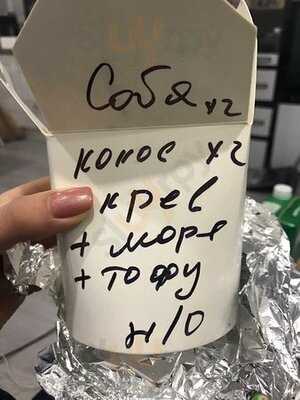 Соба х2
кокос х2
+ крев
+ моря
+ тофу
н/о